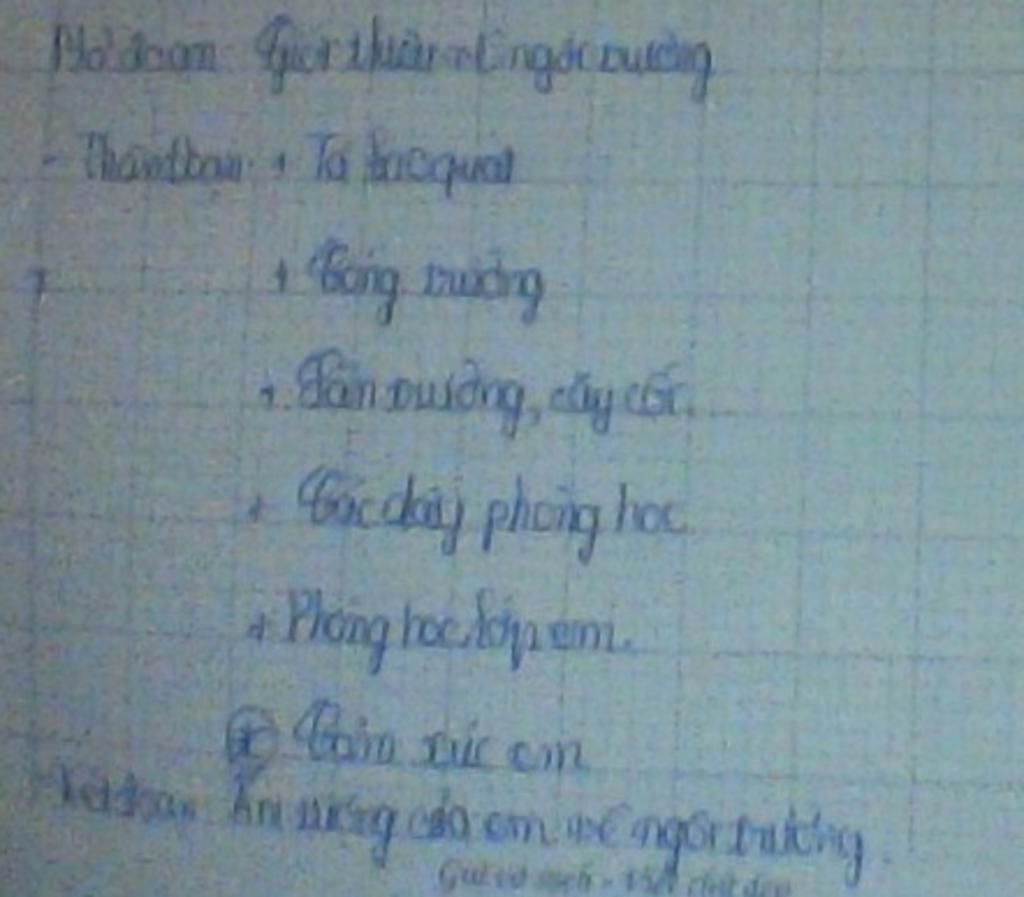 Mở đoạn: Giới thiệu về ngôi trường
- Thân đoạn: + Tả bao quát
+ Cổng trường
+ Sân trường, cây cối.
+ Các dãy phòng học
+ Phòng học lớp em.
+ Cảm xúc em
- Kết đoạn: Ấn tượng của em về ngôi trường.
Giữ vở sạch - Viết chữ đẹp